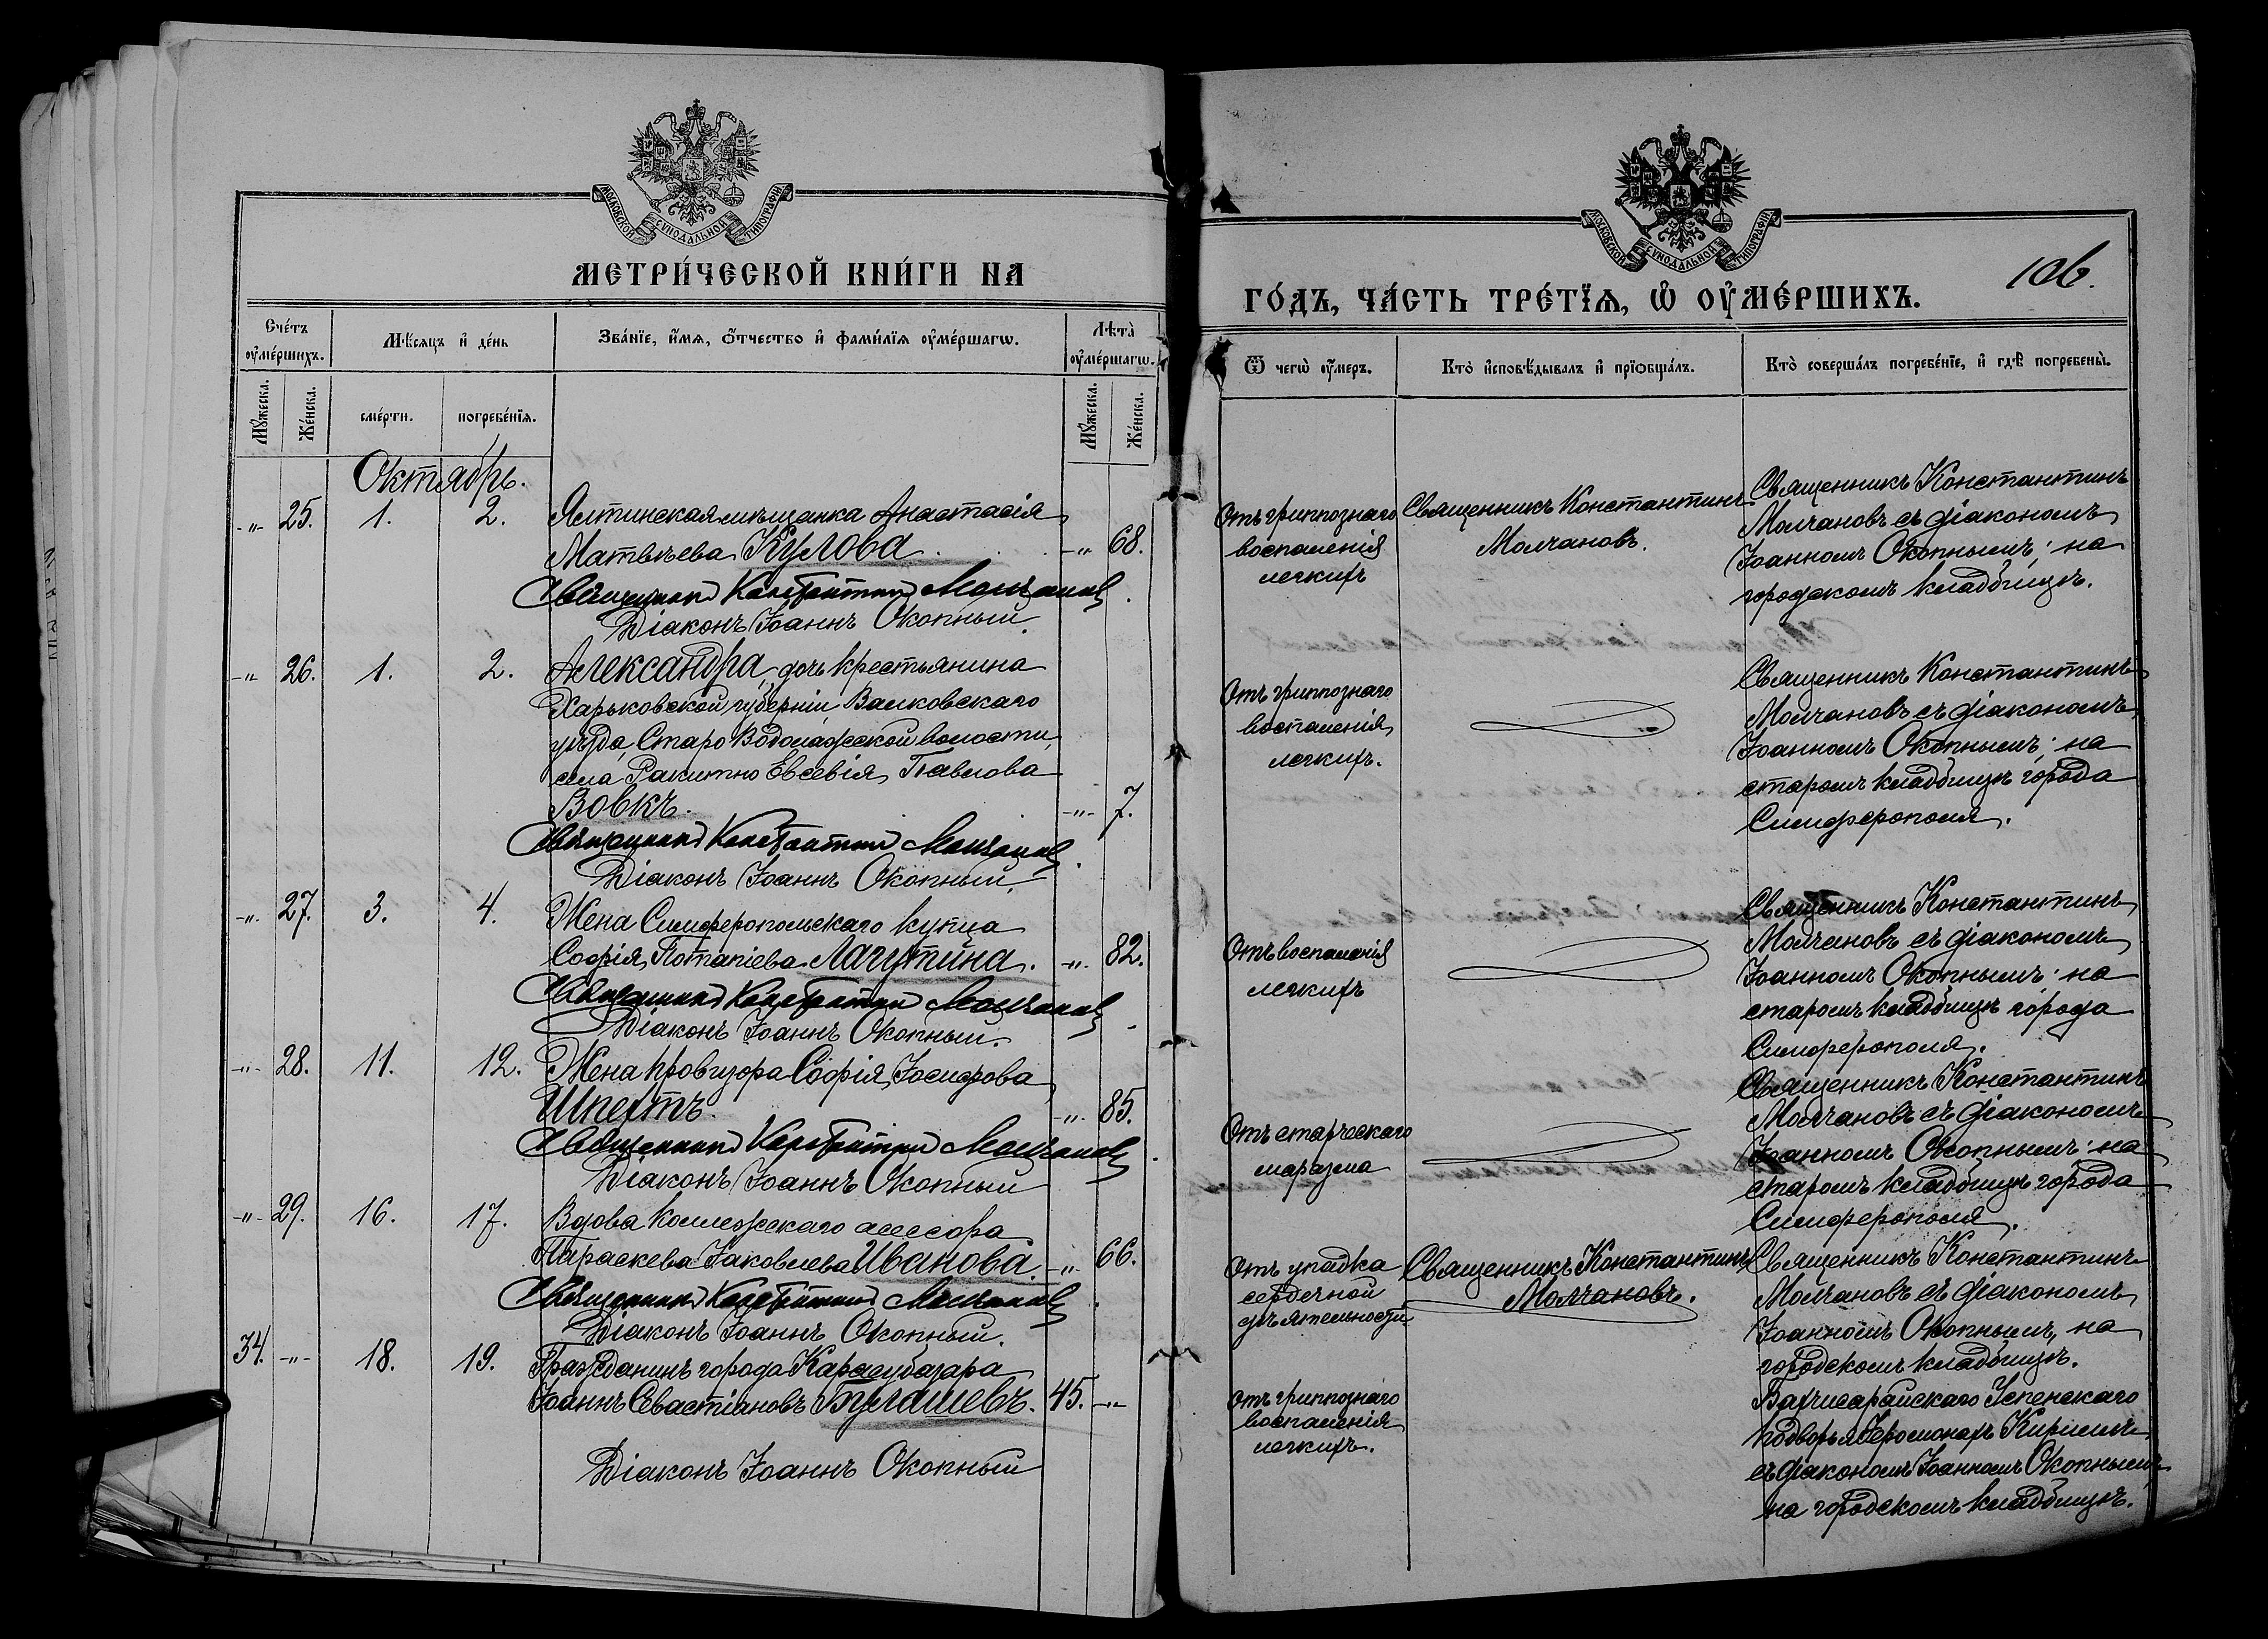 МОСКОВСКОЙ СѴНОДАЛЬНОЙ ТИПОГРАФІИ
МЕТРИ́ЧЕСКОЙ КНИ́ГИ НА
Сче́тъ ᲂу҆ме́ршихъ.
Мѣ́сяцъ и҆ де́нь
Зва́нїе, и҆́мѧ, ѻ҆́тчество и҆ фами́лїѧ ᲂу҆ме́ршагѡ.
Лѣта̀ ᲂу҆ме́ршагѡ.
Мꙋ́жеска.
Же́нска.
сме́рти.
погребе́нїѧ.
Мꙋ́жеска.
Же́нска.
Октябрь.
-„- 25. 1. 2. Ялтинская мѣщанка Анастасія
Матвѣева Кулова -„- 68.
Священникъ Константинъ Молчановъ.
Діаконъ Іоаннъ Окопный.
-„- 26. 1. 2. Александра, дочь крестьянина
Харьковской губерніи Валковскаго
уѣзда, Старо Водолажской волости,
села Ракитно Евсевія Павлова
Вовкъ. -„- 7.
Священникъ Константинъ Молчановъ.
Діаконъ Іоаннъ Окопный.
-„- 27. 3. 4. Жена Симферопольскаго купца
Софія Потапіева Лагутина. -„- 82.
Священникъ Константинъ Молчановъ.
Діаконъ Іоаннъ Окопный.
-„- 28. 11. 12. Жена провизора Софія Іосифова
Шпехтъ. -„- 85.
Священникъ Константинъ Молчановъ.
Діаконъ Іоаннъ Окопный
-„- 29. 16. 17. Вдова коллежскаго асессора
Параскева Іаковлева Иванова. -„- 66.
Священникъ Константинъ Молчановъ.
Діаконъ Іоаннъ Окопный.
34. -„- 18. 19. Гражданинъ города Карасубазара
Іоаннъ Севастіановъ Булашевъ. 45. -„-
Діаконъ Іоаннъ Окопный
МОСКОВСКОЙ СѴНОДАЛЬНОЙ ТИПОГРАФІИ
106.
ГО́ДЪ, ЧА́СТЬ ТРЕ́ТЇѦ, Ѡ҆ ОУ҆МЕ́РШИХЪ.
Ѿ чегѡ̀ ᲂу҆́меръ.
Кто̀ и҆сповѣ́дывалъ и҆ прїѡбща́лъ.
Кто̀ соверша́лъ погребе́нїе, и҆ гдѣ̀ погребены̀.
Отъ гриппознаго
воспаленія
легкихъ
Священникъ Константинъ
Молчановъ.
Священникъ Константинъ
Молчановъ съ діакономъ
Іоанномъ Окопнымъ; на
городскомъ кладбищѣ.
Отъ гриппознаго
воспаленія
легкихъ.
Священникъ Константинъ
Молчановъ съ діакономъ
Іоанномъ Окопнымъ; на
старомъ кладбищѣ города
Симферополя.
Отъ воспаленія
легкихъ
Священникъ Константинъ
Молчановъ съ діакономъ
Іоанномъ Окопнымъ; на
старомъ кладбищѣ города
Симферополя.
Отъ старческаго
маразма
Священникъ Константинъ
Молчановъ съ діакономъ
Іоанномъ Окопнымъ; на
старомъ кладбищѣ города
Симферополя.
Отъ упадка
сердечной
дѣятельности
Священникъ Константинъ
Молчановъ.
Священникъ Константинъ
Молчановъ съ діакономъ
Іоанномъ Окопнымъ, на
городскомъ кладбищѣ.
Отъ гриппознаго
воспаленія
легкихъ.
Бахчисарайскаго Успенскаго
подворья Іеромонахъ Кириллъ
съ діакономъ Іоанномъ Окопнымъ
на городскомъ кладбищѣ.